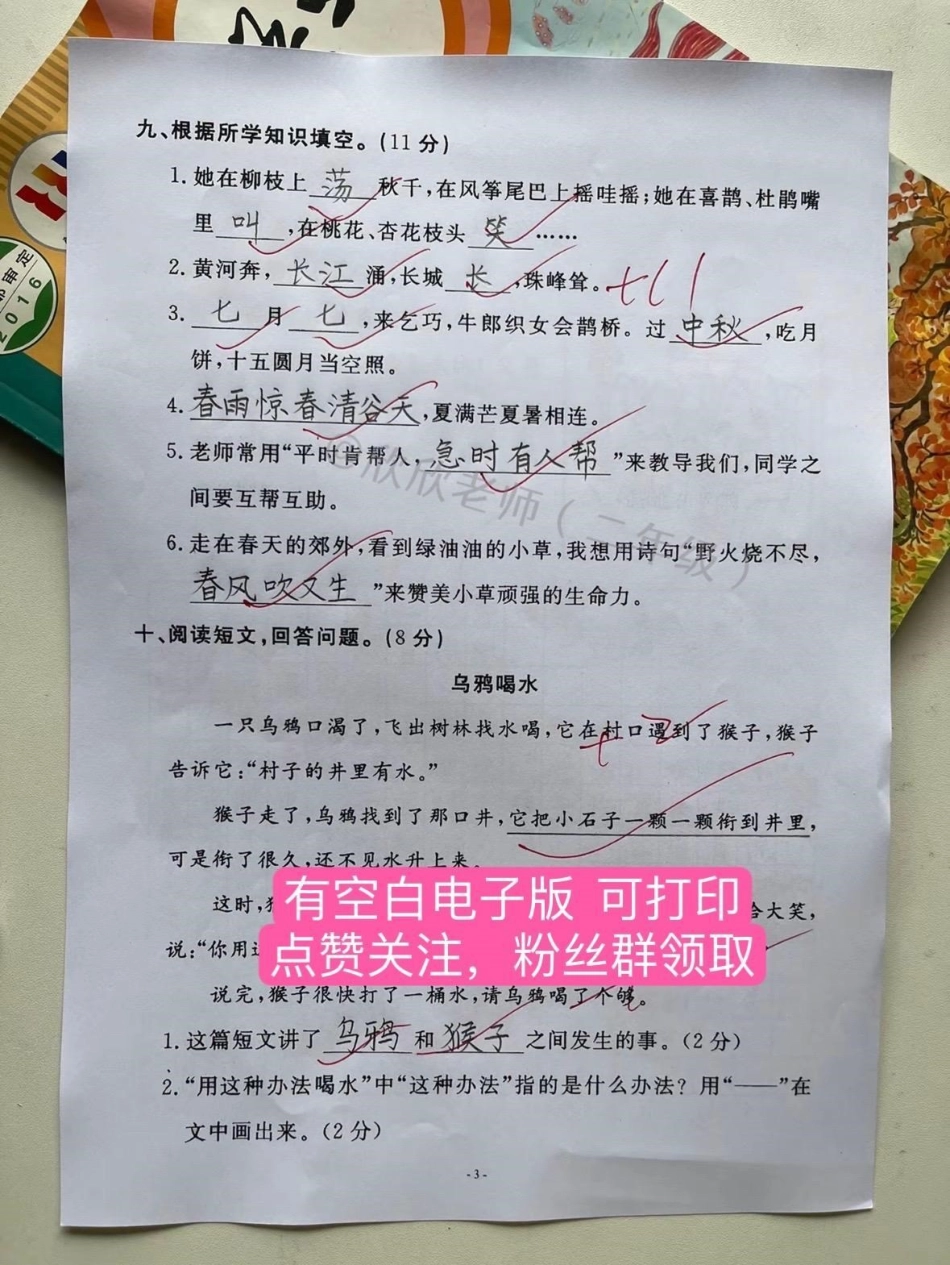 审定
2016
九、根据所学知识填空。(11分)
1.她在柳枝上 荡 秋千,在风筝尾巴上摇哇摇;她在喜鹊、杜鹃嘴
里 叫 ,在桃花、杏花枝头 笑 ……
2.黄河奔, 长江 涌,长城 长 ,珠峰耸。 +11
3. 七 月 七 ,来乞巧,牛郎织女会鹊桥。过 中秋 ,吃月
饼,十五圆月当空照。
4.春雨惊春清谷天,夏满芒夏暑相连。
5.老师常用“平时肯帮人, 急时有人帮 ”来教导我们,同学之
间要互帮互助。
@欣欣老师(二年级)
6.走在春天的郊外,看到绿油油的小草,我想用诗句“野火烧不尽,
春风吹又生 ”来赞美小草顽强的生命力。
十、阅读短文,回答问题。(8分)
乌鸦喝水
一只乌鸦口渴了,飞出树林找水喝,它在村口遇到了猴子,猴子
告诉它:“村子的井里有水。”
猴子走了,乌鸦找到了那口井,它把小石子一颗一颗衔到井里,
可是衔了很久,还不见水升上来。
这时, 大笑,
说:“你用
有空白电子版 可打印
点赞关注，粉丝群领取
说完,猴子很快打了一桶水,请乌鸦喝了个够。
1.这篇短文讲了 乌鸦 和 猴子 之间发生的事。(2分)
2.“用这种办法喝水”中“这种办法”指的是什么办法？用“——”在
文中画出来。(2分)
- 3 -